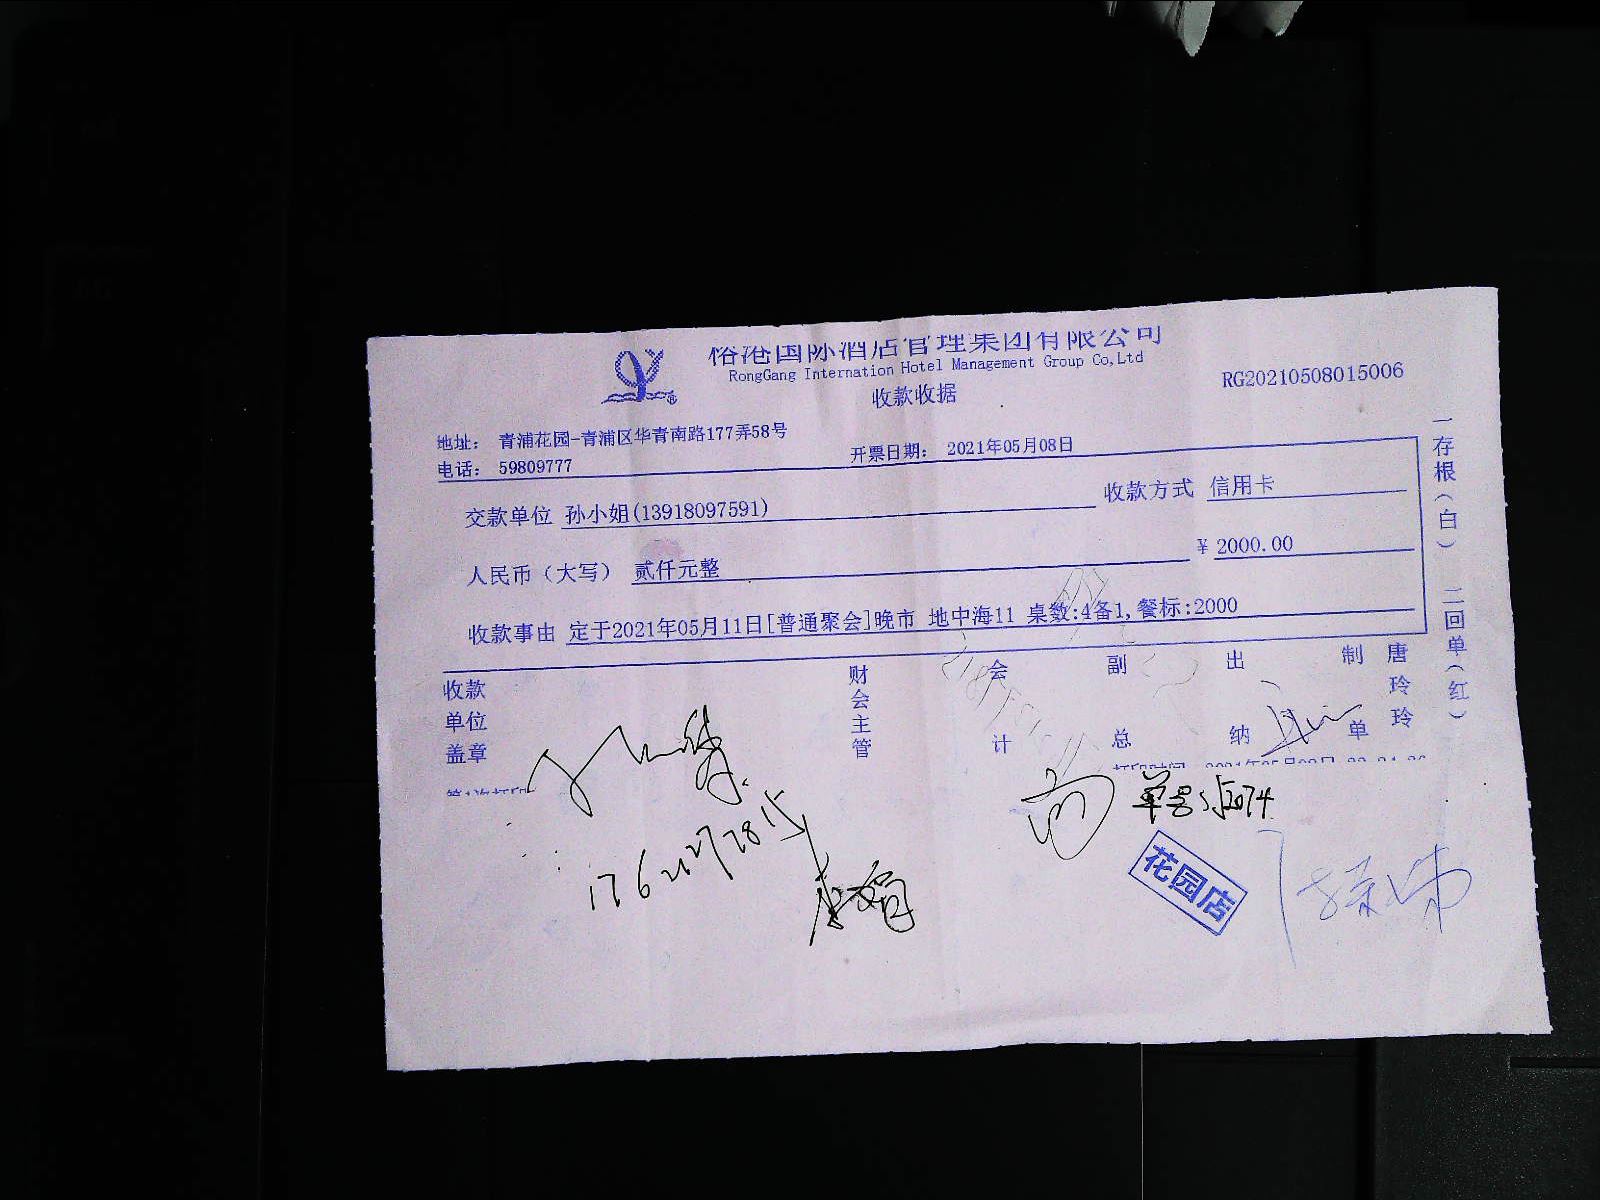 裕港国际酒店管理集团有限公司
RongGang Internation Hotel Management Group Co,Ltd
收款收据
RG20210508015006
地址: 青浦花园-青浦区华青南路177弄58号
电话: 59809777
开票日期: 2021年05月08日
交款单位 孙小姐(13918097591)
收款方式 信用卡
人民币（大写） 贰仟元整
¥ 2000.00
收款事由 定于2021年05月11日[普通聚会]晚市 地中海11 桌数:4备1,餐标:2000
收款单位盖章
财会主管
会计
副总
出纳
制单
唐玲玲
一存根（白）
二回单（红）
第1次打印
打印时间
单号 52074
花园店